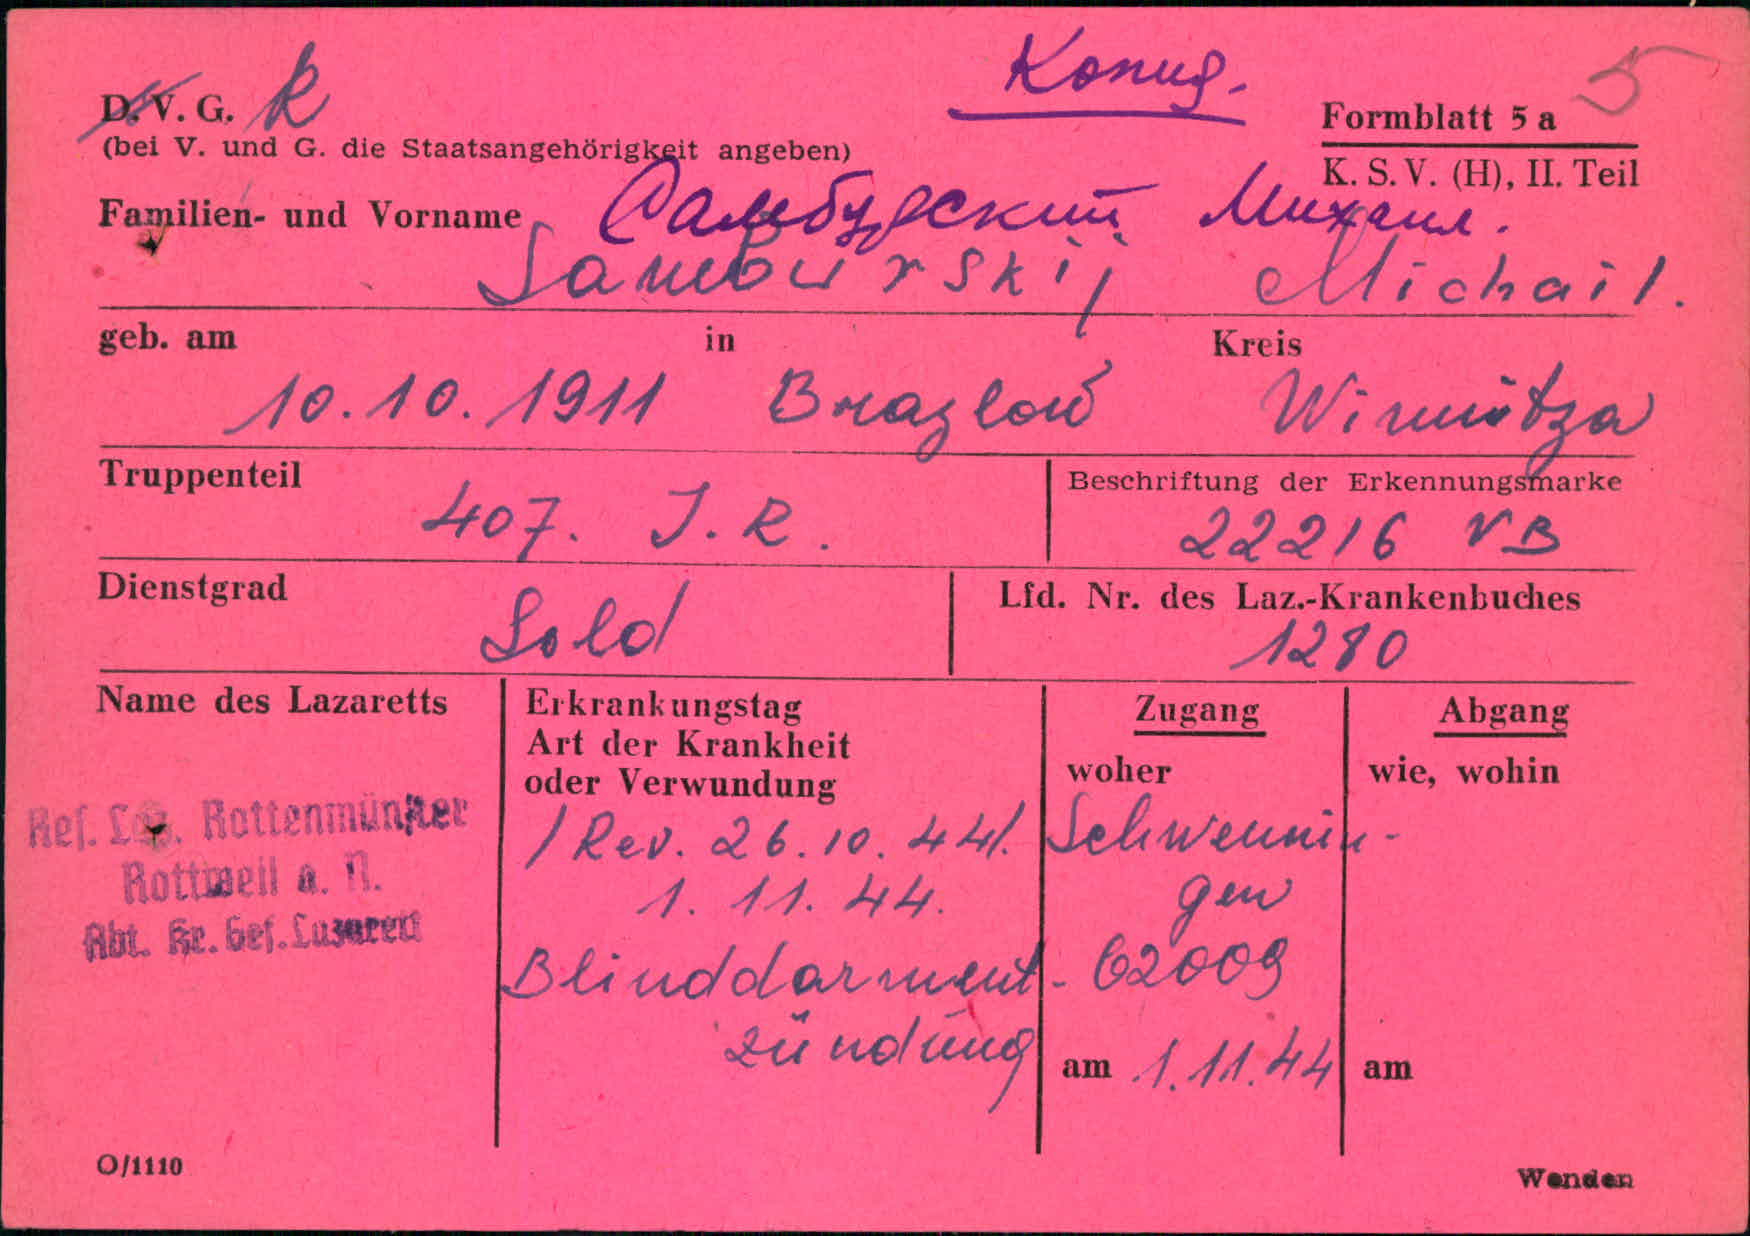 D. V. G. R
5
(bei V. und G. die Staatsangehörigkeit angeben)
Formblatt 5 a
K. S. V. (H), II. Teil
Familien- und Vorname Самбурский Михаил.
Samburskij Michail.
geb. am in Kreis
10.10.1911 Brazlow Winnitza
Truppenteil Beschriftung der Erkennungsmarke
407. J. R. 22216 VB
Dienstgrad Lfd. Nr. des Laz.-Krankenbuches
Sold 1280
Name des Lazaretts
Res. Laz. Rottenmünster
Rottweil a. N.
Abt. Kr. Gef. Lazarett
Erkrankungstag
Art der Krankheit
oder Verwundung
/Rev. 26.10.44/.
1. 11. 44.
Blinddarment-
zündung
Zugang
woher
Schwennin-
gen
62009
am 1.11.44
Abgang
wie, wohin
am
O/1110 Wenden